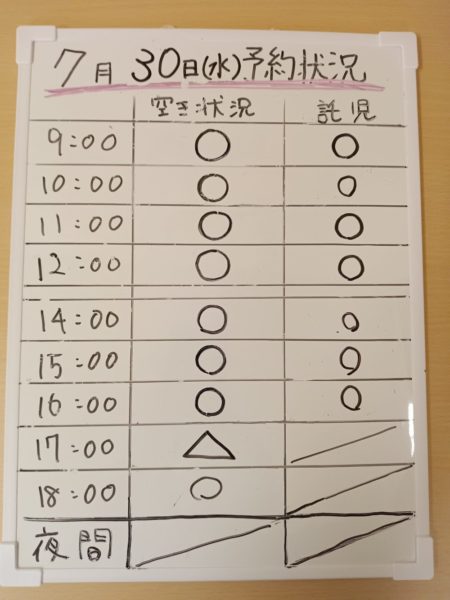 7月30日(水)予約状況
空き状況 託児
9:00 ○ ○
10:00 ○ ○
11:00 ○ ○
12:00 ○ ○
14:00 ○ ○
15:00 ○ ○
16:00 ○ ○
17:00 △
18:00 ○
夜間